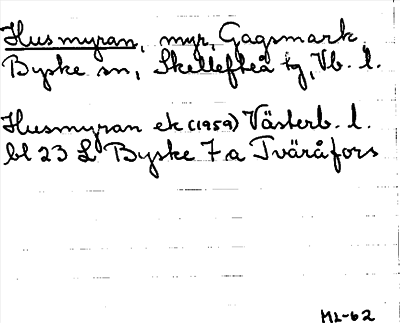 Husmyran, myr, Gagsmark
Byske sn, Skellefteå tg, Vb. l.
Husmyran ek (1959) Västerb. l.
bl 23 L Byske 7 a Tväråfors
ML-62